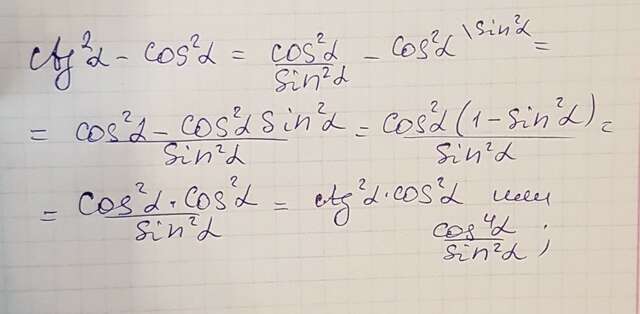 ctg²α - cos²α = cos²α/sin²α - cos²α \sin²α =
= cos²α - cos²α sin²α/sin²α = cos²α(1 - sin²α)/sin²α =
= cos²α · cos²α/sin²α = ctg²α · cos²α или
cos⁴α/sin²α ;